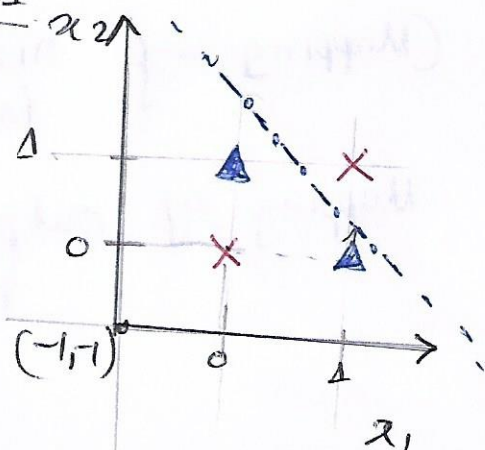 x2
1
0
(-1,-1)
0
1
x1